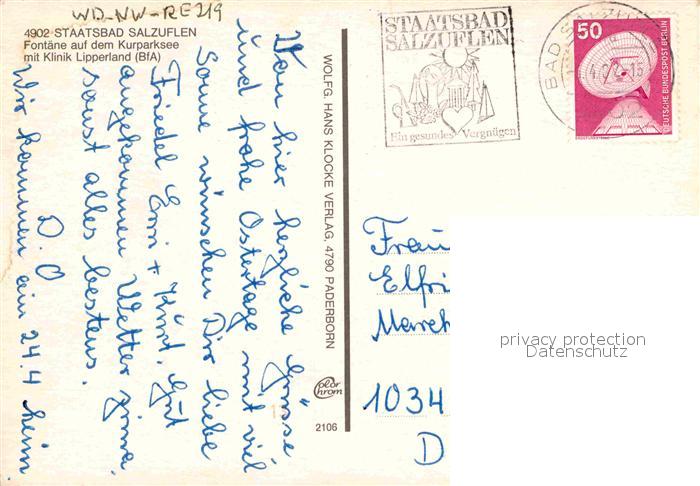 WD-NW-RE219
4902 STAATSBAD SALZUFLEN
Fontäne auf dem Kurparksee
mit Klinik Lipperland (BfA)
Von hier herzliche Grüsse
und frohe Ostertage mit viel
Sonne wünschen Dir liebe
Friedel Emi + Kurt. Gut
angekommen Wetter prima
sonst alles bestens.
D. O
Wir kommen am 24.4 heim
WOLFG. HANS KLOCKE VERLAG, 4790 PADERBORN
color chrom
2106
STAATSBAD
SALZUFLEN
Ein gesundes Vergnügen
BAD
50
DEUTSCHE BUNDESPOST BERLIN
Frau
Elfri
March
1034
D
privacy protection
Datenschutz